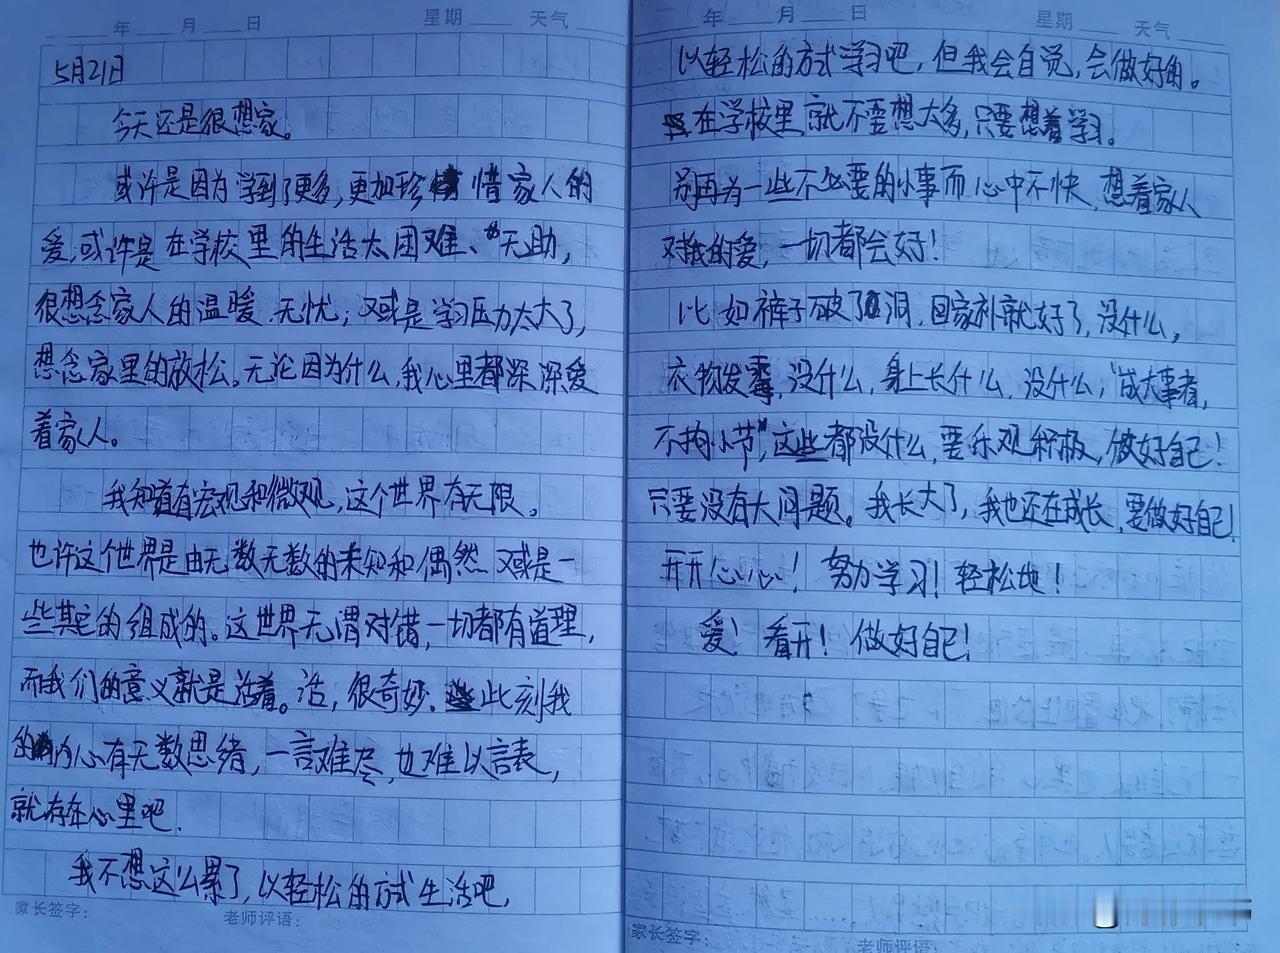 年 月 日 星期 天气
5月21日
今天还是很想家。
或许是因为学到了更多,更加珍惜家人的
爱,或许是在学校里的生活太困难、无助,
很想念家人的温暖、无忧;又或是学习压力太大了,
想念家里的放松。无论因为什么,我心里都深深爱
着家人。
我知道有宏观和微观,这个世界有无限。
也许这个世界是由无数无数的未知和偶然 又或是一
些其它的组成的。这世界无谓对错,一切都有道理,
而我们的意义就是活着。活,很奇妙.此刻我
的内心有无数思绪,一言难尽,也难以言表,
就存在心里吧.
我不想这么累了,以轻松的方式生活吧,
家长签字: 老师评语:
年 月 日 星期 天气
以轻松的方式学习吧,但我会自觉,会做好的。
在学校里就不要想太多,只要想着学习。
别再为一些不必要的小事而心中不快,想着家人
对我的爱,一切都会好!
比如裤子破了洞,回家补就好了,没什么,
衣物发霉,没什么,身上长什么,没什么,“成大事者,
不拘小节”,这些都没什么,要乐观积极,做好自己!
只要没有大问题。我长大了,我也还在成长,要做好自己!
开开心心!努力学习!轻松地!
爱!看开!做好自己!
家长签字: 老师评语: